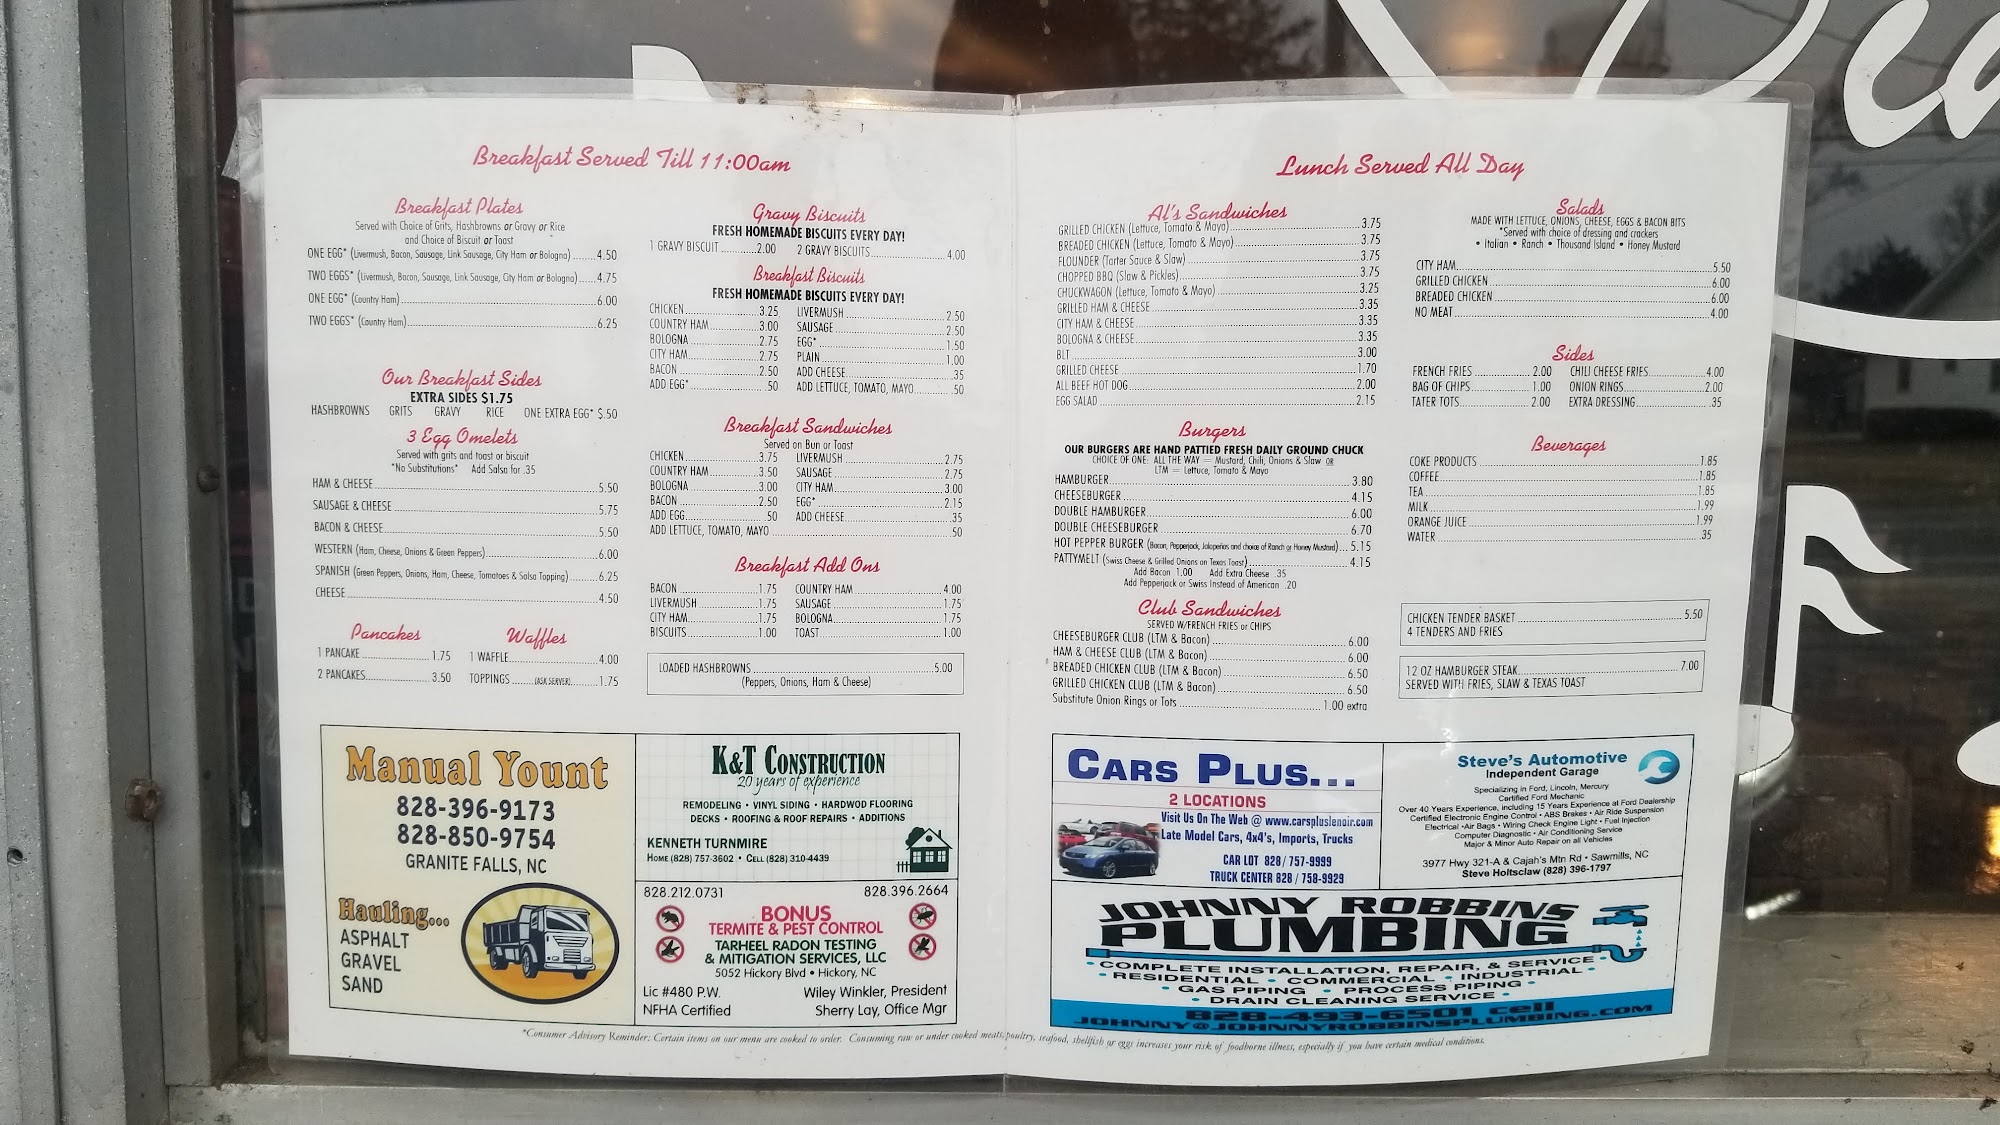 Breakfast Served Till 11:00am
Breakfast Plates
Served with Choice of Grits, Hashbrowns or Gravy or Rice
and Choice of Biscuit or Toast
ONE EGG* (Livermush, Bacon, Sausage, Link Sausage, City Ham or Bologna) 4.50
TWO EGGS* (Livermush, Bacon, Sausage, Link Sausage, City Ham or Bologna) 4.75
ONE EGG* (Country Ham) 6.00
TWO EGGS* (Country Ham) 6.25
Our Breakfast Sides
EXTRA SIDES $1.75
HASHBROWNS GRITS GRAVY RICE ONE EXTRA EGG* $.50
3 Egg Omelets
Served with grits and toast or biscuit
*No Substitutions* Add Salsa for .35
HAM & CHEESE 5.50
SAUSAGE & CHEESE 5.75
BACON & CHEESE 5.50
WESTERN (Ham, Cheese, Onions & Green Peppers) 6.00
SPANISH (Green Peppers, Onions, Ham, Cheese, Tomatoes & Salsa Topping) 6.25
CHEESE 4.50
Pancakes
1 PANCAKE 1.75
2 PANCAKES 3.50
Waffles
1 WAFFLE 4.00
TOPPINGS (ASK SERVER) 1.75
Gravy Biscuits
FRESH HOMEMADE BISCUITS EVERY DAY!
1 GRAVY BISCUIT 2.00 2 GRAVY BISCUITS 4.00
Breakfast Biscuits
FRESH HOMEMADE BISCUITS EVERY DAY!
CHICKEN 3.25 LIVERMUSH 2.50
COUNTRY HAM 3.00 SAUSAGE 2.50
BOLOGNA 2.75 EGG* 1.50
CITY HAM 2.75 PLAIN 1.00
BACON 2.50 ADD CHEESE .35
ADD EGG* .50 ADD LETTUCE, TOMATO, MAYO .50
Breakfast Sandwiches
Served on Bun or Toast
CHICKEN 3.75 LIVERMUSH 2.75
COUNTRY HAM 3.50 SAUSAGE 2.75
BOLOGNA 3.00 CITY HAM 3.00
BACON 2.50 EGG* 2.15
ADD EGG .50 ADD CHEESE .35
ADD LETTUCE, TOMATO, MAYO .50
Breakfast Add Ons
BACON 1.75 COUNTRY HAM 4.00
LIVERMUSH 1.75 SAUSAGE 1.75
CITY HAM 1.75 BOLOGNA 1.75
BISCUITS 1.00 TOAST 1.00
LOADED HASHBROWNS 5.00
(Peppers, Onions, Ham & Cheese)
Manual Yount
828-396-9173
828-850-9754
GRANITE FALLS, NC
Hauling...
ASPHALT
GRAVEL
SAND
K&T CONSTRUCTION
20 years of experience
REMODELING • VINYL SIDING • HARDWOD FLOORING
DECKS • ROOFING & ROOF REPAIRS • ADDITIONS
KENNETH TURNMIRE
HOME (828) 757-3602 • CELL (828) 310-4439
828.212.0731 828.396.2664
BONUS
TERMITE & PEST CONTROL
TARHEEL RADON TESTING
& MITIGATION SERVICES, LLC
5052 Hickory Blvd • Hickory, NC
Lic #480 P.W. Wiley Winkler, President
NFHA Certified Sherry Lay, Office Mgr
Lunch Served All Day
Al's Sandwiches
GRILLED CHICKEN (Lettuce, Tomato & Mayo) 3.75
BREADED CHICKEN (Lettuce, Tomato & Mayo) 3.75
FLOUNDER (Tarter Sauce & Slaw) 3.75
CHOPPED BBQ (Slaw & Pickles) 3.75
CHUCKWAGON (Lettuce, Tomato & Mayo) 3.25
GRILLED HAM & CHEESE 3.35
CITY HAM & CHEESE 3.35
BOLOGNA & CHEESE 3.35
BLT 3.00
GRILLED CHEESE 1.70
ALL BEEF HOT DOG 2.00
EGG SALAD 2.15
Burgers
OUR BURGERS ARE HAND PATTIED FRESH DAILY GROUND CHUCK
CHOICE OF ONE: ALL THE WAY = Mustard, Chili, Onions & Slaw OR
LTM = Lettuce, Tomato & Mayo
HAMBURGER 3.80
CHEESEBURGER 4.15
DOUBLE HAMBURGER 6.00
DOUBLE CHEESEBURGER 6.70
HOT PEPPER BURGER (Bacon, Pepperjack, Jalapeños and choice of Ranch or Honey Mustard) 5.15
PATTYMELT (Swiss Cheese & Grilled Onions on Texas Toast) 4.15
Add Bacon 1.00 Add Extra Cheese .35
Add Pepperjack or Swiss Instead of American .20
Club Sandwiches
SERVED W/FRENCH FRIES or CHIPS
CHEESEBURGER CLUB (LTM & Bacon) 6.00
HAM & CHEESE CLUB (LTM & Bacon) 6.00
BREADED CHICKEN CLUB (LTM & Bacon) 6.50
GRILLED CHICKEN CLUB (LTM & Bacon) 6.50
Substitute Onion Rings or Tots 1.00 extra
Salads
MADE WITH LETTUCE, ONIONS, CHEESE, EGGS & BACON BITS
*Served with choice of dressing and crackers
• Italian • Ranch • Thousand Island • Honey Mustard
CITY HAM 5.50
GRILLED CHICKEN 6.00
BREADED CHICKEN 6.00
NO MEAT 4.00
Sides
FRENCH FRIES 2.00 CHILI CHEESE FRIES 4.00
BAG OF CHIPS 1.00 ONION RINGS 2.00
TATER TOTS 2.00 EXTRA DRESSING .35
Beverages
COKE PRODUCTS 1.85
COFFEE 1.85
TEA 1.85
MILK 1.99
ORANGE JUICE 1.99
WATER .35
CHICKEN TENDER BASKET 5.50
4 TENDERS AND FRIES
12 OZ HAMBURGER STEAK 7.00
SERVED WITH FRIES, SLAW & TEXAS TOAST
CARS PLUS...
2 LOCATIONS
Visit Us On The Web @ www.carspluslenoir.com
Late Model Cars, 4x4's, Imports, Trucks
CAR LOT 828/757-9999
TRUCK CENTER 828/758-9929
Steve's Automotive
Independent Garage
Specializing in Ford, Lincoln, Mercury
Certified Ford Mechanic
Over 40 Years Experience, including 15 Years Experience at Ford Dealership
Certified Electronic Engine Control • ABS Brakes • Air Ride Suspension
Electrical • Air Bags • Wiring Check Engine Light • Fuel Injection
Computer Diagnostic • Air Conditioning Service
Major & Minor Auto Repair on all Vehicles
3977 Hwy 321-A & Cajah's Mtn Rd • Sawmills, NC
Steve Holtsclaw (828) 396-1797
JOHNNY ROBBINS
PLUMBING
• COMPLETE INSTALLATION, REPAIR, & SERVICE •
• RESIDENTIAL • COMMERCIAL • INDUSTRIAL •
• GAS PIPING • PROCESS PIPING •
• DRAIN CLEANING SERVICE •
828-493-6501 cell
JOHNNY@JOHNNYROBBINSPLUMBING.COM
*Consumer Advisory Reminder: Certain items on our menu are cooked to order. Consuming raw or under cooked meats, poultry, seafood, shellfish or eggs increases your risk of foodborne illness, especially if you have certain medical conditions.